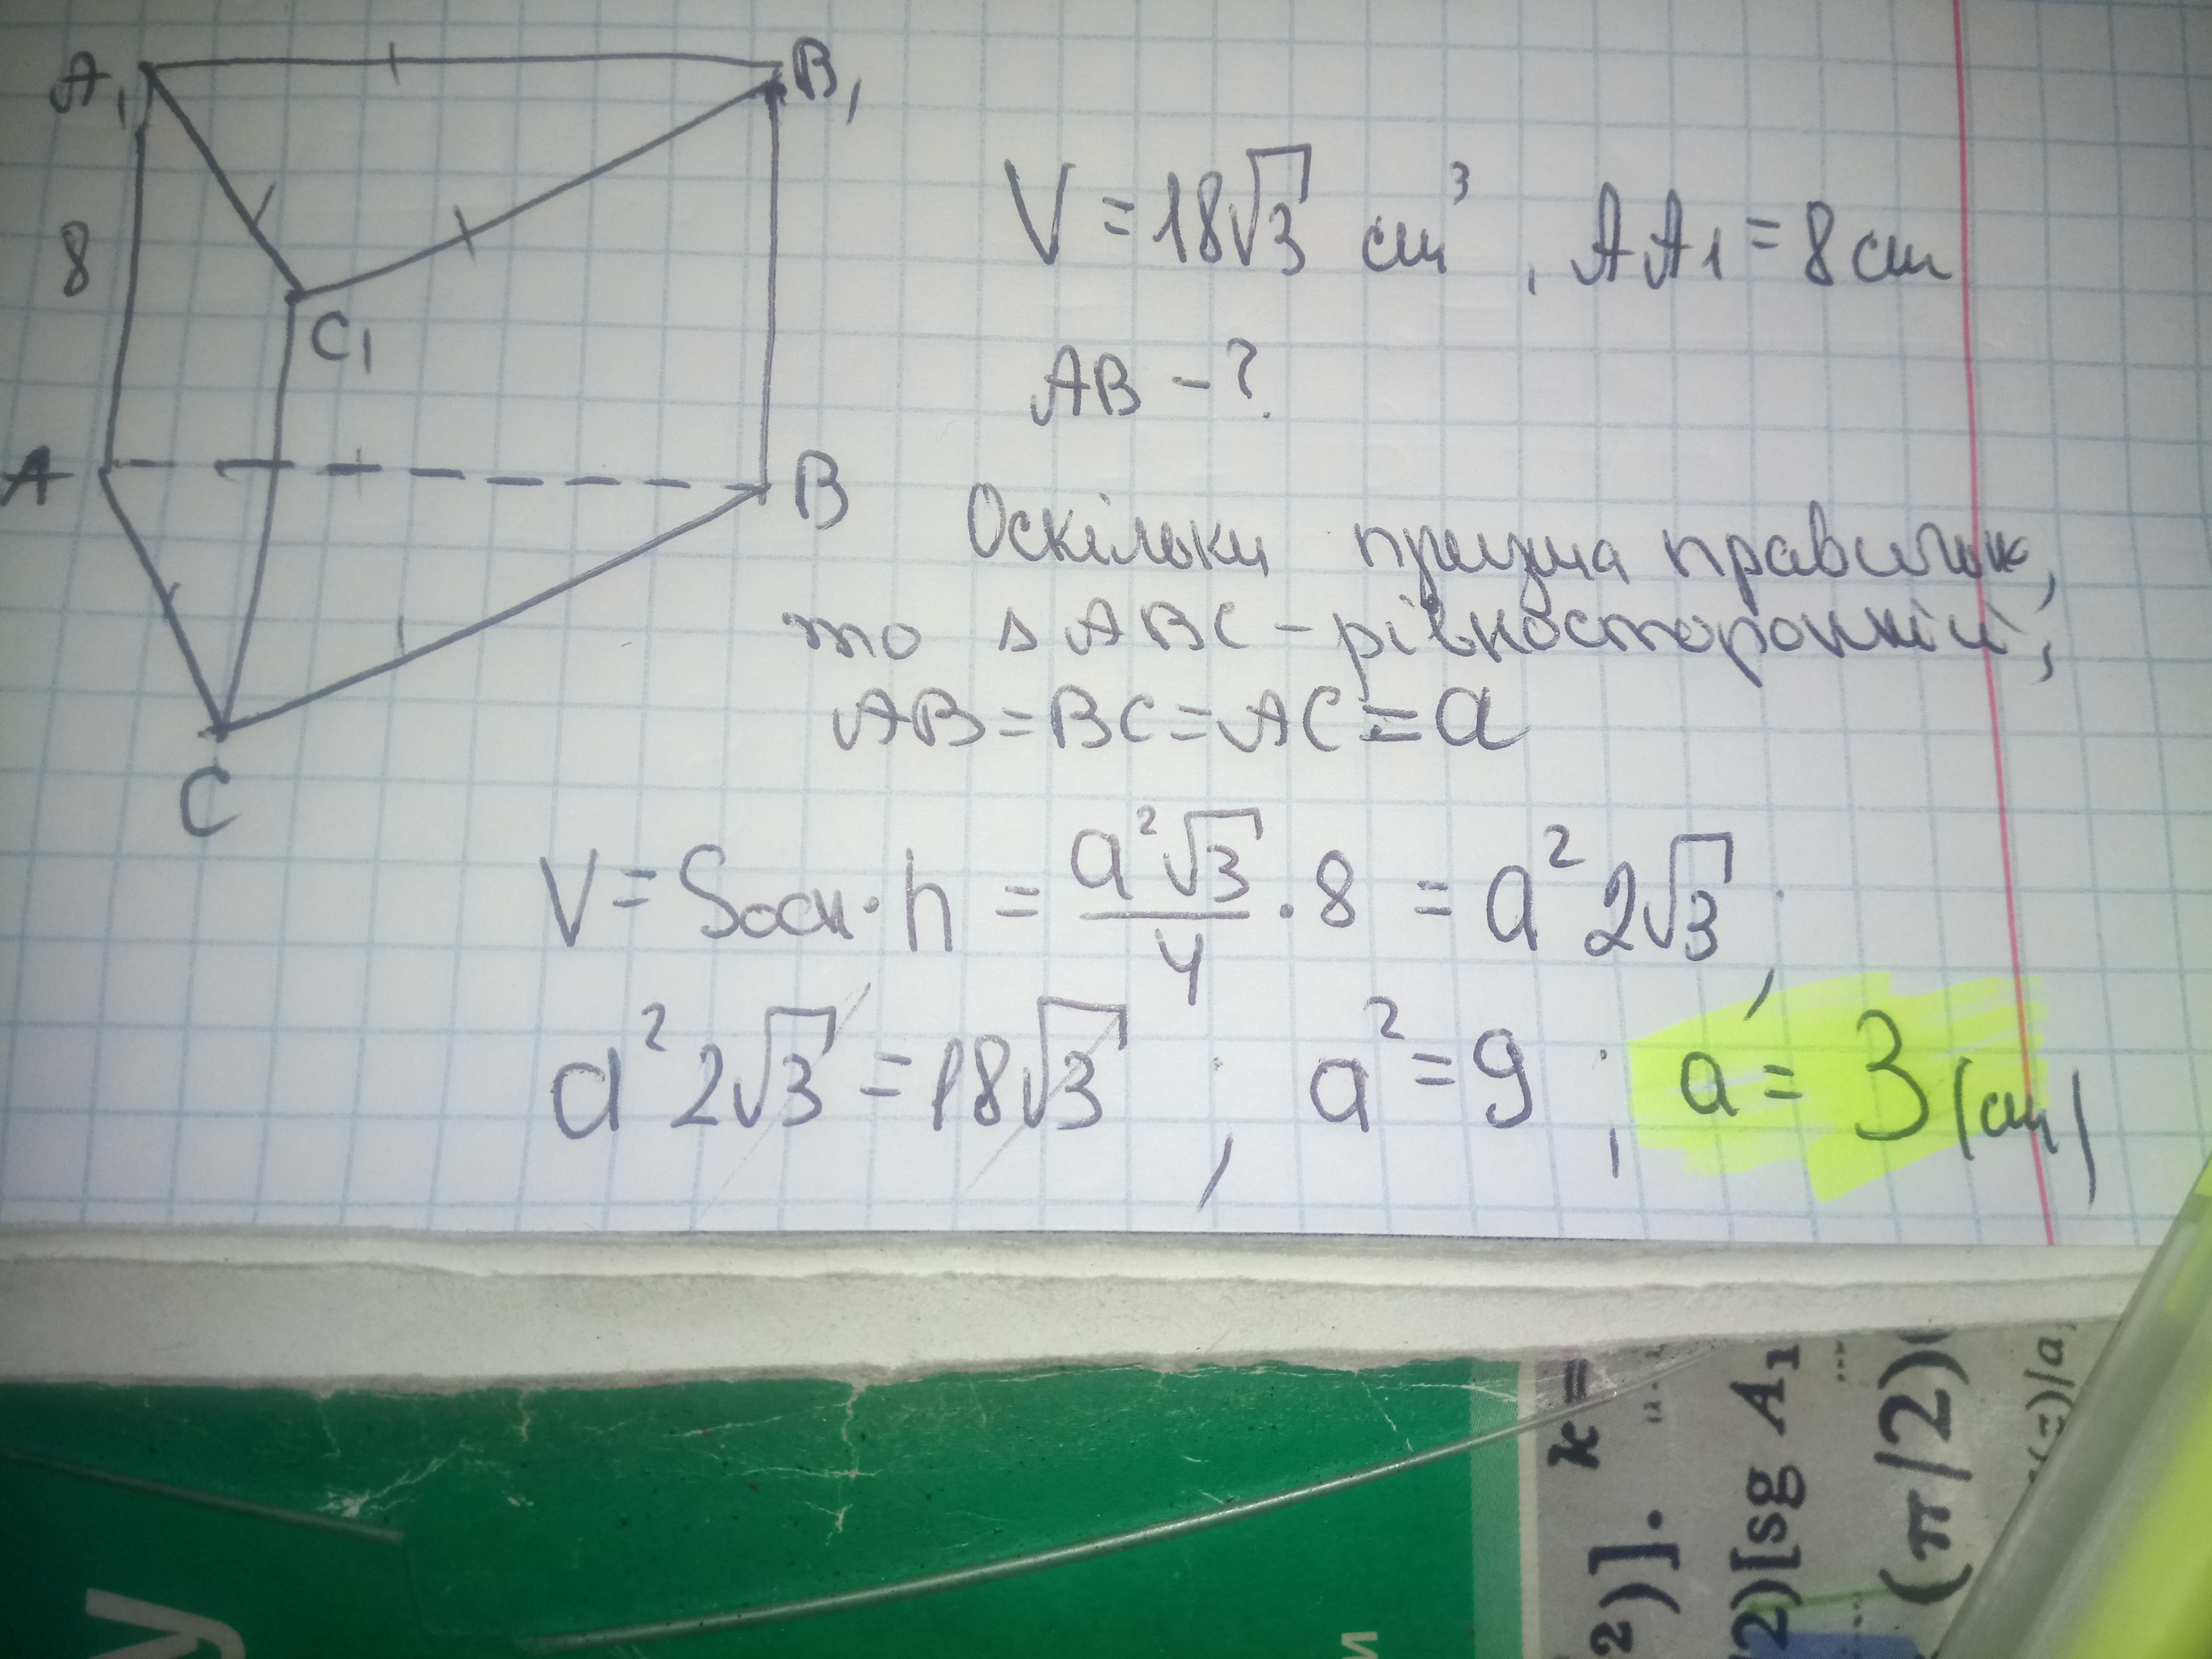 A₁
B₁
8
C₁
A
B
C
V = 18√3 см³, AA₁ = 8 см
AB - ?
Оскільки призма правильна,
то △ ABC - рівносторонній;
AB = BC = AC = a
V = Sосн · h = a²√3/4 · 8 = a² 2√3;
a² 2√3 = 18√3 ; a² = 9 ; a = 3 (см)
у
и
k =
2)].
2)[sg A₁
(π/2)(
)/a,